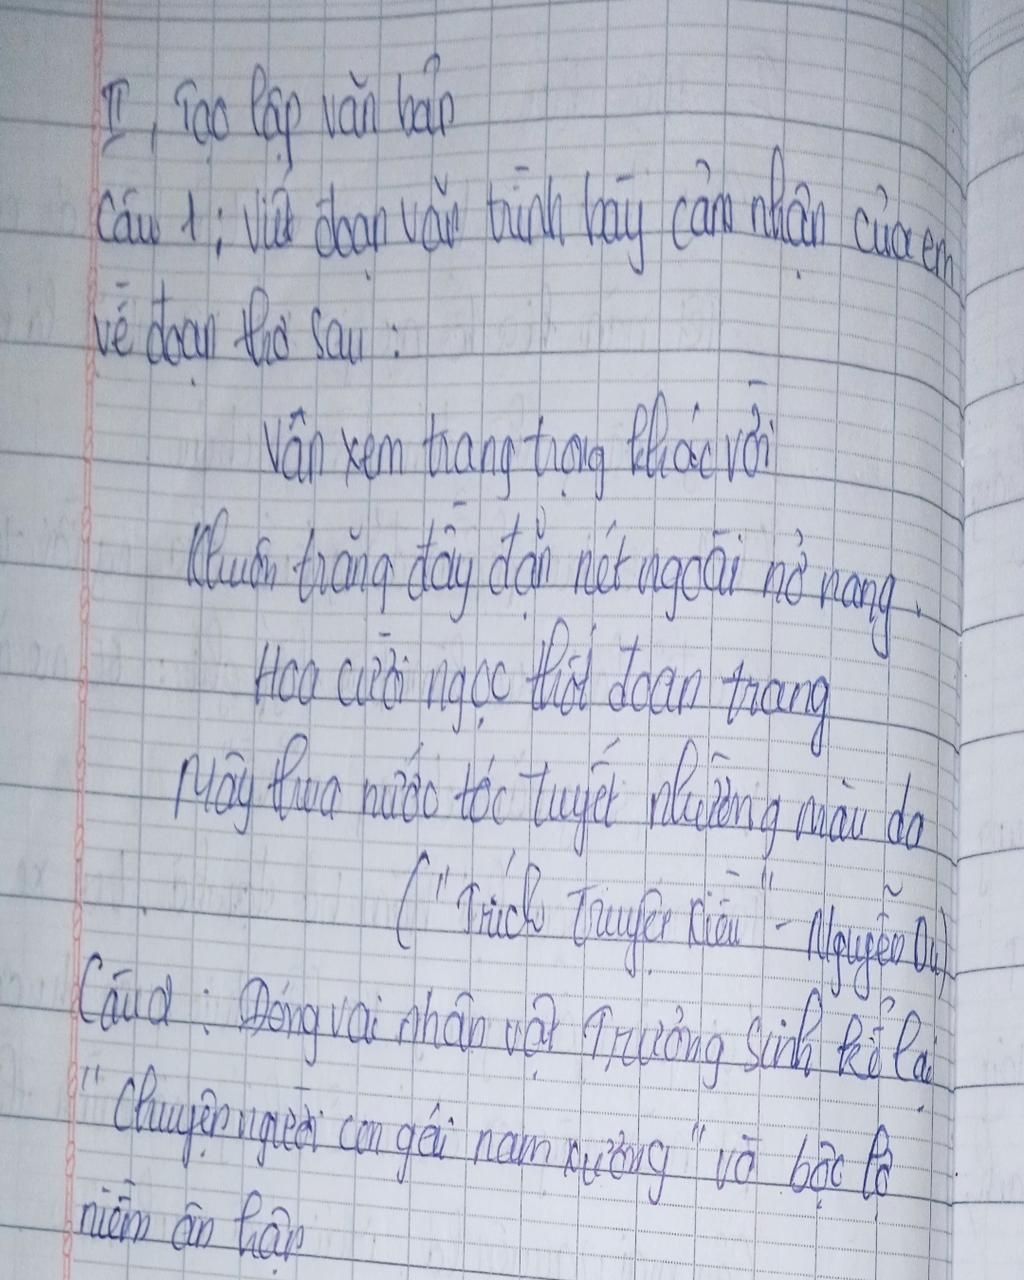 II, Tạo lập văn bản
Câu 1: Viết đoạn văn trình bày cảm nhận của em
về đoạn thơ sau:
Vân xem trang trọng khác vời
Khuôn trăng đầy đặn nét ngoài nở nang.
Hoa cười ngọc thốt đoan trang
Mây thua nước tóc tuyết nhường màu da
("Trích Truyện Kiều" - Nguyễn Du)
Câu 2: Đóng vai nhân vật Trương Sinh kể lại
"Chuyện người con gái nam xương" và bộc lộ
niềm ân hận